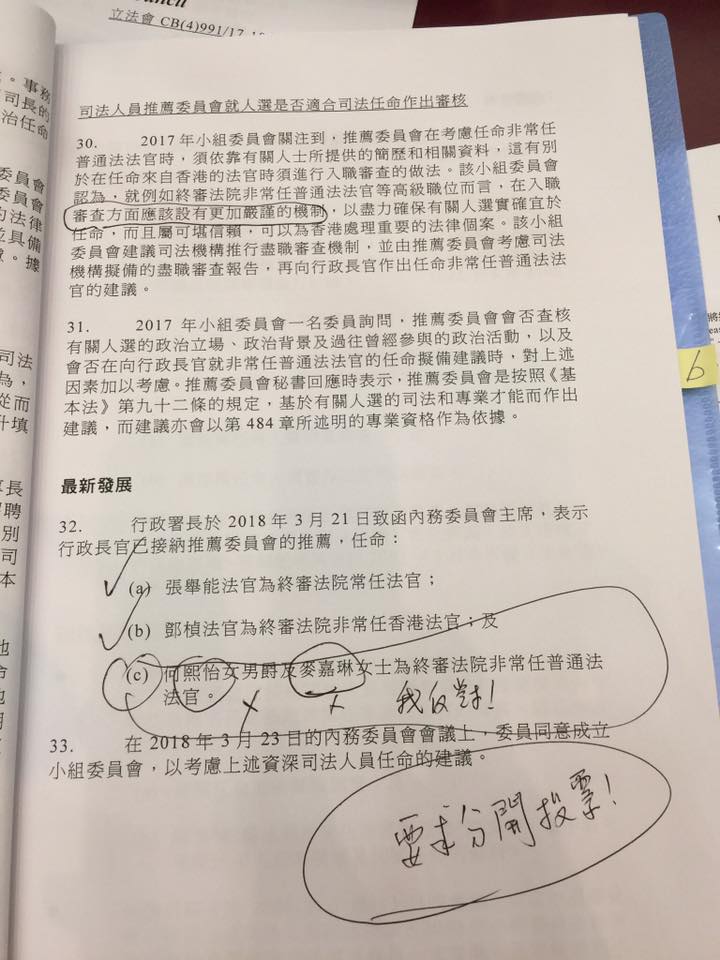 立法會 CB(4)991/17-18
司法人員推薦委員會就人選是否適合司法任命作出審核
30. 2017 年小組委員會關注到，推薦委員會在考慮任命非常任
普通法法官時，須依靠有關人士所提供的簡歷和相關資料，這有別
於在任命來自香港的法官時須進行入職審查的做法。該小組委員會
認為，就例如終審法院非常任普通法法官等高級職位而言，在入職
審查方面應該設有更加嚴謹的機制，以盡力確保有關人選實確宜於
任命，而且屬可堪信賴，可以為香港處理重要的法律個案。該小組
委員會建議司法機構推行盡職審查機制，並由推薦委員會考慮司法
機構擬備的盡職審查報告，再向行政長官作出任命非常任普通法法
官的建議。
31. 2017 年小組委員會一名委員詢問，推薦委員會會否查核
有關人選的政治立場、政治背景及過往曾經參與的政治活動，以及
會否在向行政長官就非常任普通法法官的任命擬備建議時，對上述
因素加以考慮。推薦委員會秘書回應時表示，推薦委員會是按照《基
本法》第九十二條的規定，基於有關人選的司法和專業才能而作出
建議，而建議亦會以第 484 章所述明的專業資格作為依據。
最新發展
32. 行政署長於 2018 年 3 月 21 日致函內務委員會主席，表示
行政長官已接納推薦委員會的推薦，任命：
(a) 張舉能法官為終審法院常任法官；
(b) 鄧楨法官為終審法院非常任香港法官；及
(c) 何熙怡女男爵及麥嘉琳女士為終審法院非常任普通法
法官。
我反對！
33. 在 2018 年 3 月 23 日的內務委員會會議上，委員同意成立
小組委員會，以考慮上述資深司法人員任命的建議。
要求分開投票！
6